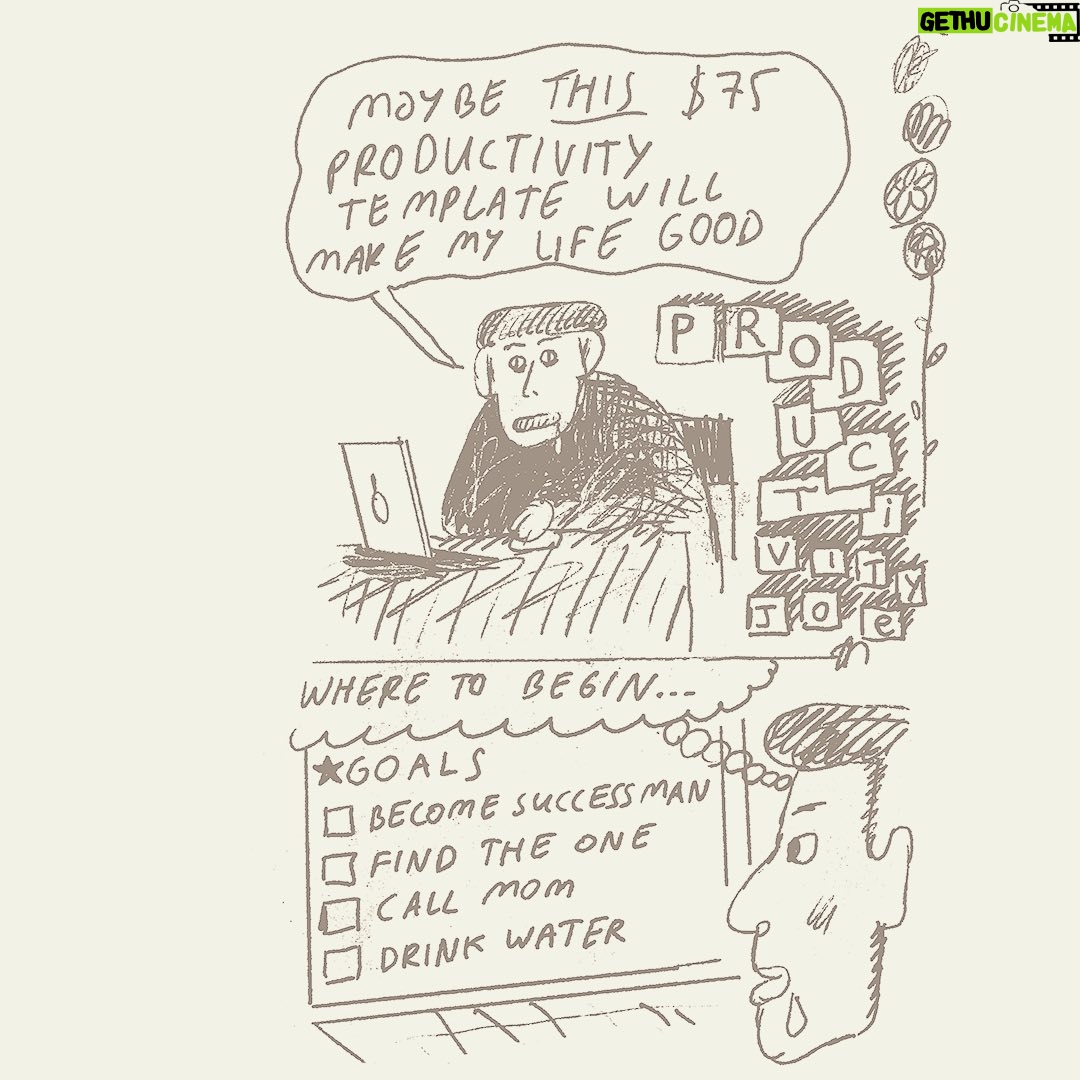 GETHUCINEMA
MAYBE THIS $75
PRODUCTIVITY
TEMPLATE WILL
MAKE MY LIFE GOOD
PRODUCTIVITY
JOe
WHERE TO BEGIN...
★GOALS
BECOME SUCCESS MAN
FIND THE ONE
CALL MOM
DRINK WATER